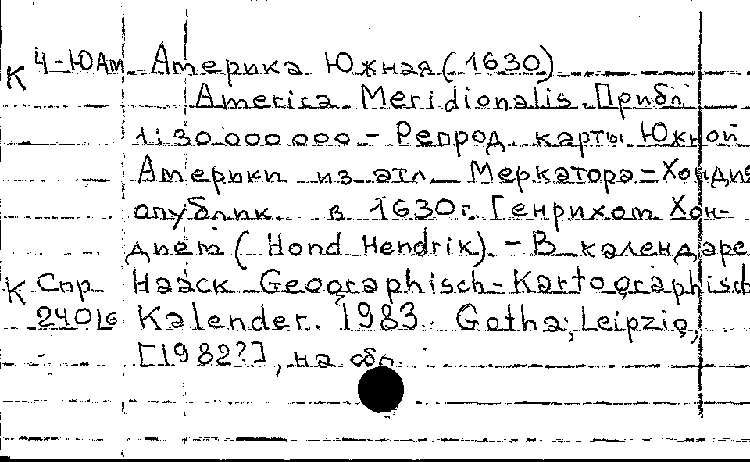 К Ч-ЮАм Америка Южная (1630)
America Meridionalis. Прибл
1:30.000000 - Репрод. карты Южной
Америки из атл. Меркатора-Хондия
опублик. в 1630г. Генрихом Хон-
дием ( Hond Hendrik). - В календаре
К Спр Haack Geographisch-Kartographisch
Kalender. 1983. Gotha; Leipzig,
[1982?], на обл.